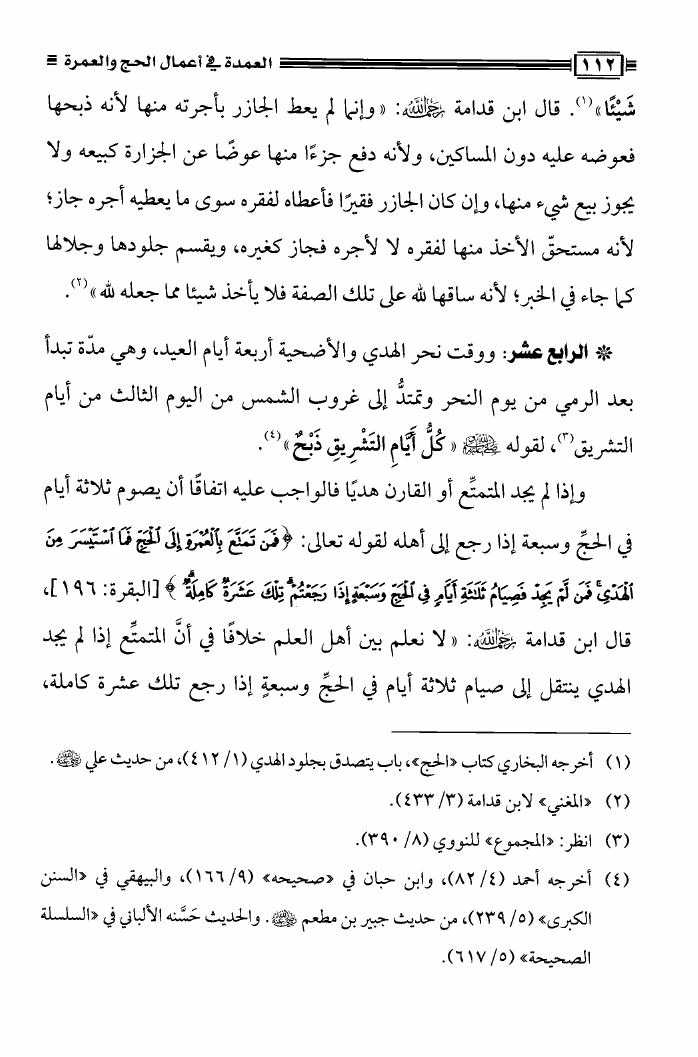 ١١٢ العمدة في أعمال الحج والعمرة
شَيْئًا»(١). قال ابن قدامة رَحِمَهُ اللَّهُ: «وإنما لم يعط الجازر بأجرته منها لأنه ذبحها
فعوضه عليه دون المساكين، ولأنه دفع جزءًا منها عوضًا عن الجزارة كبيعه ولا
يجوز بيع شيء منها، وإن كان الجازر فقيرًا فأعطاه لفقره سوى ما يعطيه أجره جاز؛
لأنه مستحقّ الأخذ منها لفقره لا لأجره فجاز كغيره، ويقسم جلودها وجلالها
كما جاء في الخبر؛ لأنه ساقها لله على تلك الصفة فلا يأخذ شيئا مما جعله لله»(٢).
* الرابع عشر: ووقت نحر الهدي والأضحية أربعة أيام العيد، وهي مدّة تبدأ
بعد الرمي من يوم النحر وتمتدُّ إلى غروب الشمس من اليوم الثالث من أيام
التشريق(٣)، لقوله ﷺ «كُلُّ أَيَّامِ التَشْرِيقِ ذَبْحٌ»(٤).
وإذا لم يجد المتمتِّع أو القارن هديًا فالواجب عليه اتفاقًا أن يصوم ثلاثة أيام
في الحجِّ وسبعة إذا رجع إلى أهله لقوله تعالى: ﴿فَمَن تَمَتَّعَ بِالْعُمْرَةِ إِلَى الْحَجِّ فَمَا اسْتَيْسَرَ مِنَ
الْهَدْيِ ۚ فَمَن لَّمْ يَجِدْ فَصِيَامُ ثَلَاثَةِ أَيَّامٍ فِي الْحَجِّ وَسَبْعَةٍ إِذَا رَجَعْتُمْ ۗ تِلْكَ عَشَرَةٌ كَامِلَةٌ ۗ﴾ [البقرة: ١٩٦]،
قال ابن قدامة رَحِمَهُ اللَّهُ: «لا نعلم بين أهل العلم خلافًا في أنَّ المتمتِّع إذا لم يجد
الهدي ينتقل إلى صيام ثلاثة أيام في الحجِّ وسبعةٍ إذا رجع تلك عشرة كاملة،
(١) أخرجه البخاري كتاب «الحج»، باب يتصدق بجلود الهدي (١/ ٤١٢)، من حديث علي رَضِيَ اللَّهُ عَنْهُ.
(٢) «المغني» لابن قدامة (٣/ ٤٣٣).
(٣) انظر: «المجموع» للنووي (٨/ ٣٩٠).
(٤) أخرجه أحمد (٤/ ٨٢)، وابن حبان في «صحيحه» (٩/ ١٦٦)، والبيهقي في «السنن
الكبرى» (٥/ ٢٣٩)، من حديث جبير بن مطعم رَضِيَ اللَّهُ عَنْهُ. والحديث حَسَّنه الألباني في «السلسلة
الصحيحة» (٥/ ٦١٧).